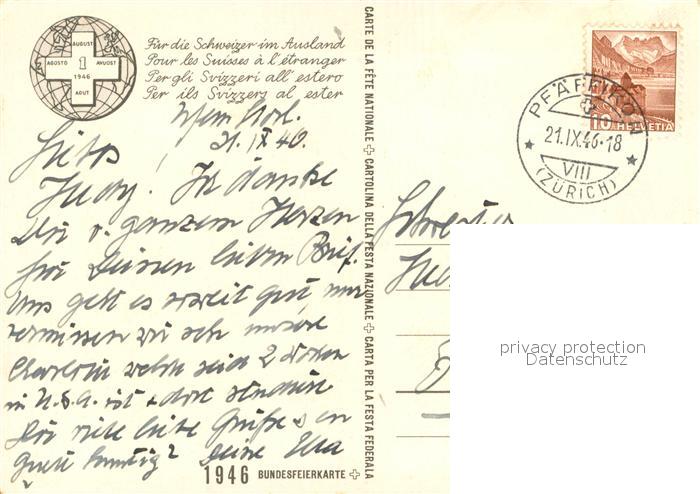 AUGUST
AGOSTO 1 AVUOST
1946
AOUT
Für die Schweizer im Ausland
Pour les Suisses à l'étranger
Per gli Svizzeri all'estero
Per ils Svizzers al ester
21. IX 46.
Liebe
Judy! Ich danke
Dir v. ganzem Herzen
für Deinen lieben Brief.
Uns geht es soweit gut, nur
vermissen wir sehr unsere
Charlotte welche seit 2 Wochen
in U.S.A. ist + dort studiert
Dir viele liebe Grüße
Deine Ella
1946 BUNDESFEIERKARTE
CARTE DE LA FÊTE NATIONALE + CARTOLINA DELLA FESTA NAZIONALE + CARTA PER LA FESTA FEDERALA
10 HELVETIA
PFÄFFIKON
21.IX.46-18
VIII
(ZÜRICH)
Schwester
privacy protection
Datenschutz